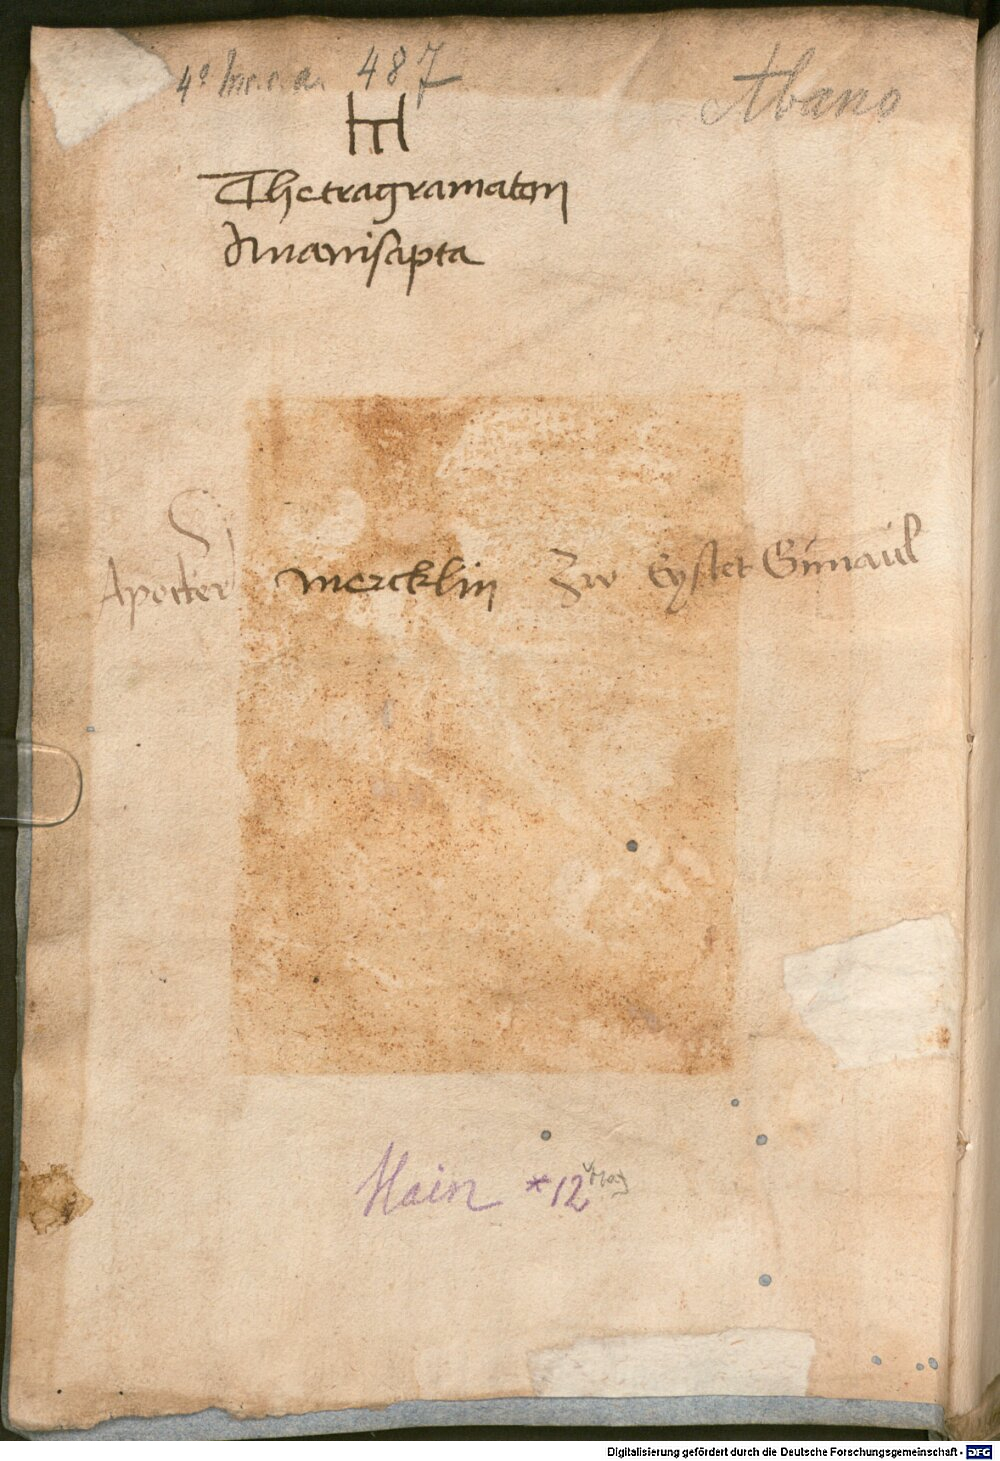 4° Inc. c. a. 487
Abano
Thetragramaton
Ananisapta
Apotecker mercklin Zw Eystet
Hain *12
Digitalisierung gefördert durch die Deutsche Forschungsgemeinschaft - DFG